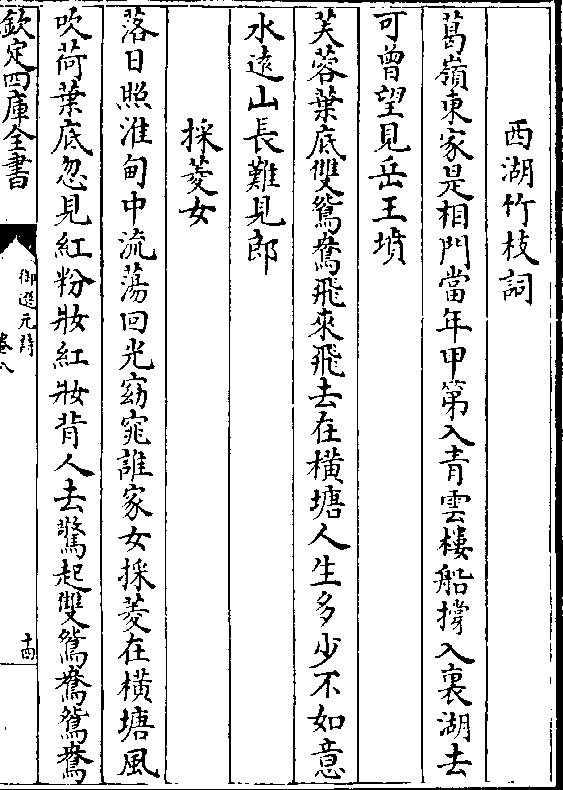 西湖竹枝詞
葛嶺東家是相門當年甲第入青雲樓船撐入裏湖去
可曾望見岳王墳
芙蓉葉底雙鴛鴦飛來飛去在橫塘人生多少不如意
水遠山長難見郎
採菱女
落日照淮甸中流蕩回光窈窕誰家女採菱在橫塘風
吹荷葉底忽見紅粉妝紅妝背人去驚起雙鴛鴦鴛鴦
欽定四庫全書
御選元詩
卷八
十四